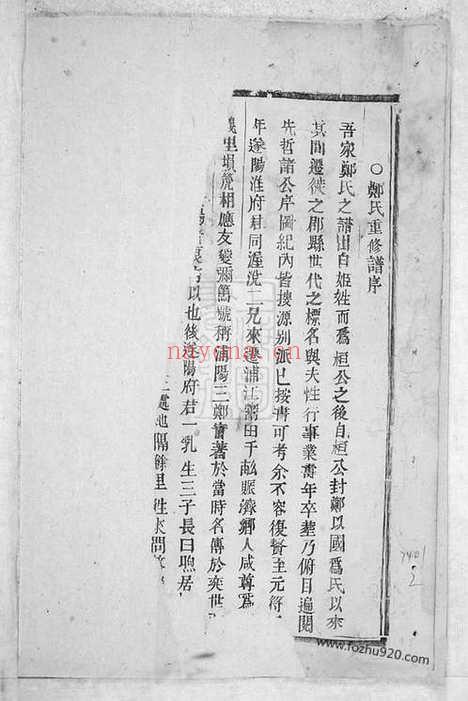 ○鄭氏重修譜序
吾家鄭氏之譜出自姬姓而爲桓公之後自桓公封鄭以國爲氏以來
其間遷徙之郡縣世代之標名與夫性行事業壽年卒塟乃俯目遍閱
先哲諸公序圖紀內皆搜源別派已按靑可考余不容復贅至元符
年遂陽淮府君同渥況二兄來遷浦江粥田千畝賑濟鄉人咸尊爲
義里塤箎相應友愛彌篤號稱浦陽三鄭實著於當時名傳於奕世
以也後遂陽府君一乳生三子長曰煦居
處地隔餘里徃來問
nayona.cn
7401
2
www.fozhu920.com